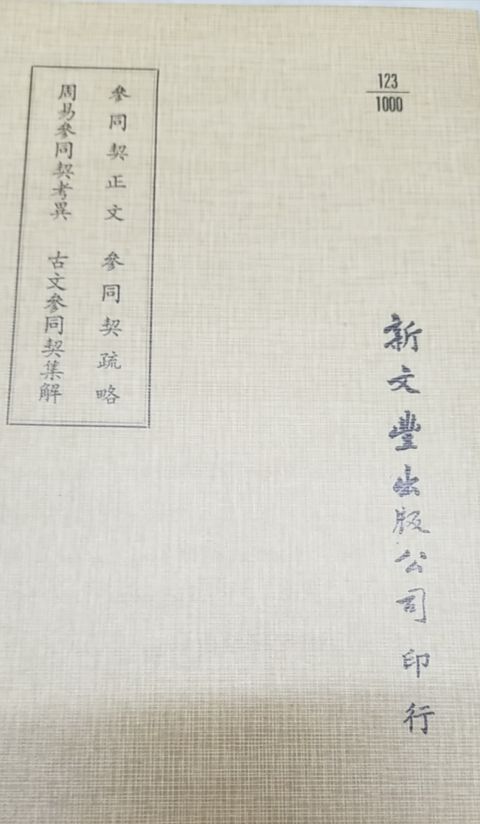 123
1000
參同契正文 參同契疏略
周易參同契考異 古文參同契集解
新文豐出版公司印行